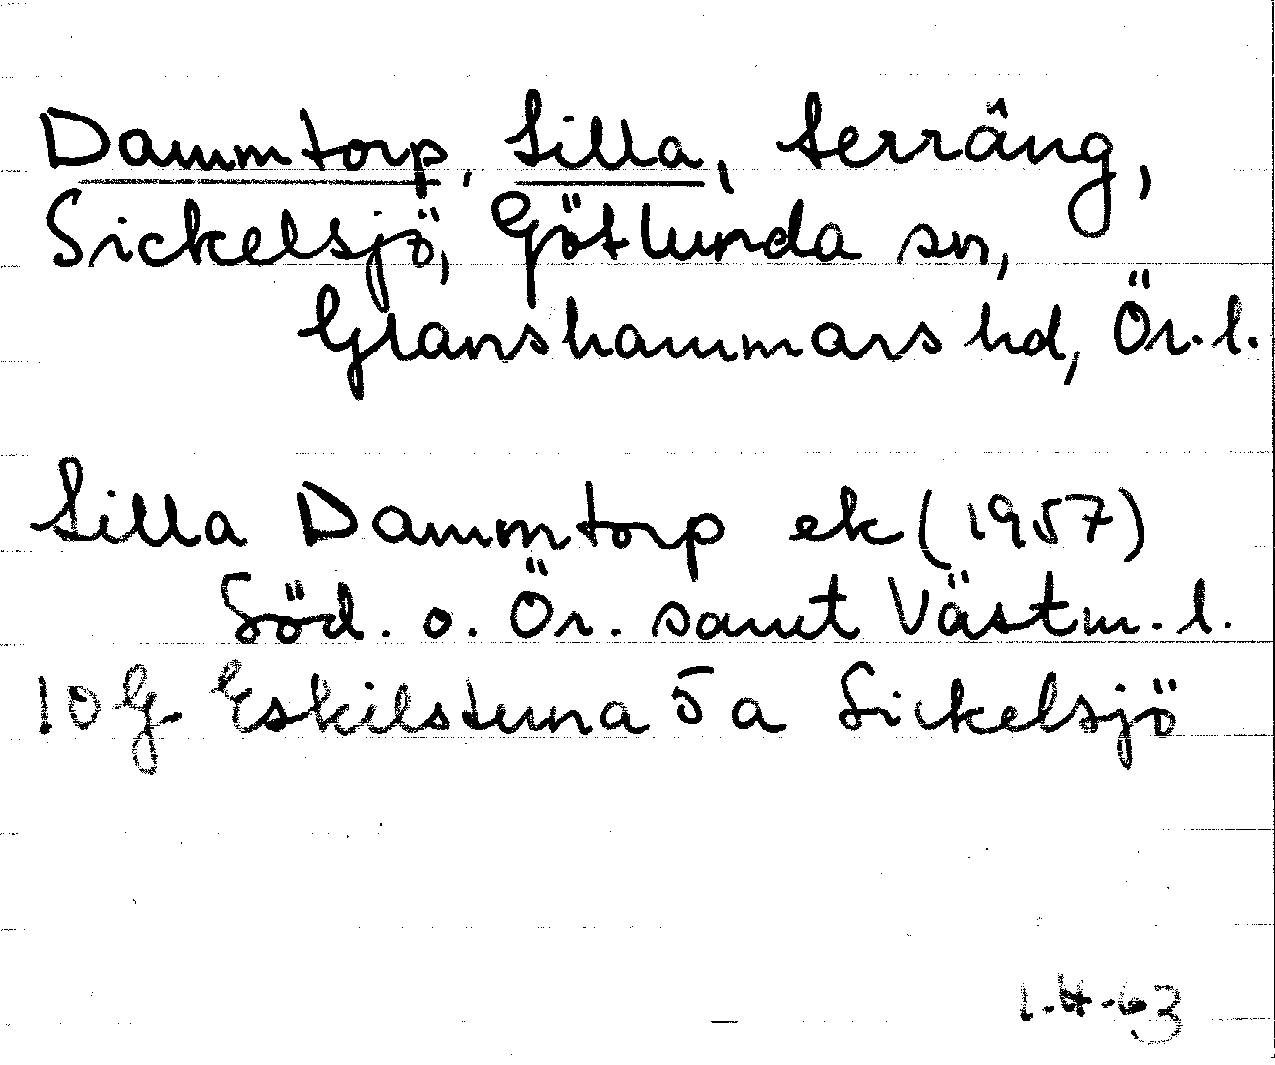 Dammtorp, Lilla, terräng,
Sickelsjö, Götlunda sn,
Glanshammars hd, Ör. l.
Lilla Dammtorp ek (1957)
Söd. o. Ör. samt Västm. l.
10 G Eskilstuna 5 a Sickelsjö
1.4.63